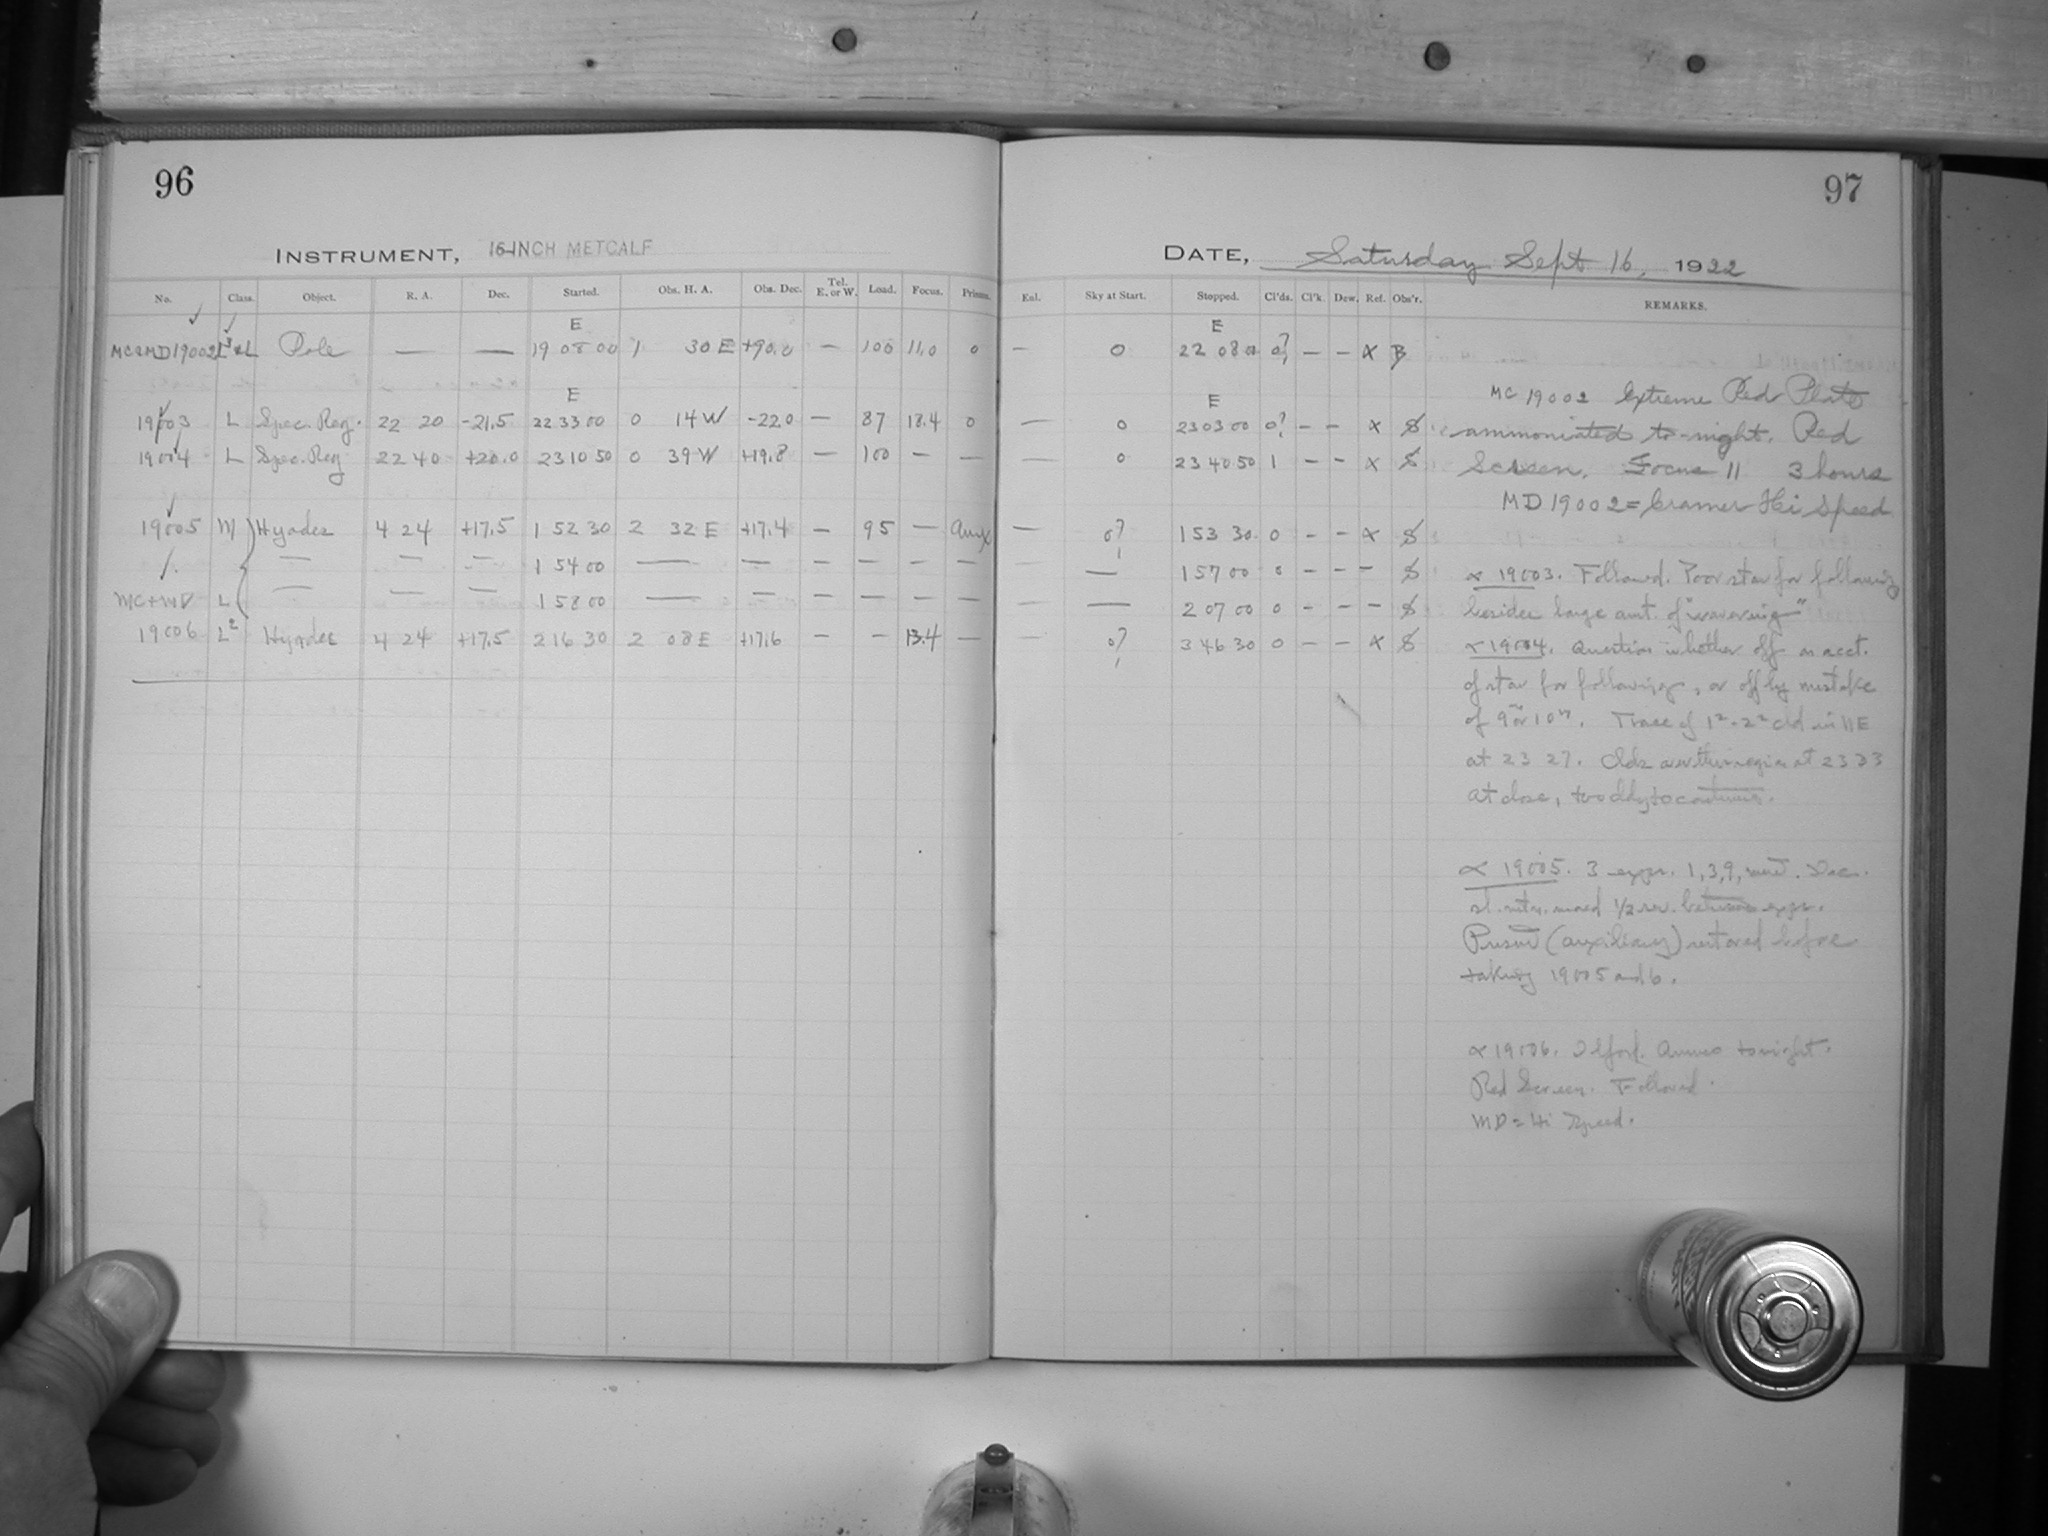 96
INSTRUMENT, 16-INCH METCALF
No. Class. Object. R. A. Dec. Started. Obs. H. A. Obs. Dec. Tel. E. or W. Load. Focus. Prism.
E
MC&MD19002 L3&L Pole — — 19 08 00 1 30 E +90.0 — 100 11.0 0
E
19003 L Spec. Reg. 22 20 -21.5 22 33 00 0 14 W -22.0 — 87 13.4 0
19004 L Spec. Reg 22 40 +20.0 23 10 50 0 39 W +19.8 — 100 — —
19005 M Hyades 4 24 +17.5 1 52 30 2 32 E +17.4 — 95 — Aux
— — — 1 54 00 — — — — — —
MC+MD L — — — 1 58 00 — — — — — —
19006 L2 Hyades 4 24 +17.5 2 16 30 2 08 E +17.6 — — 13.4 —
97
DATE, Saturday Sept 16, 1922
Enl. Sky at Start. Stopped. Cl'ds. Cl'k. Dew. Ref. Obs'r. REMARKS.
E
— 0 22 08 00 0? — — x B
E
— 0 23 03 00 0? — — x S
— 0 23 40 50 1 — — x S
— 0? 1 53 30 0 — — x S
— 1 57 00 0 — — — S
— — 2 07 00 0 — — — S
— 0? 3 46 30 0 — — x S
MC 19002 Extreme Red Plate
ammoniated to-night. Red
Screen. Focus 11 3 hours
MD 19002 = Cramer Hi Speed
19003. Followed. Poor star for following
besides large amt. of "wavering"
19004. Question whether off on acct.
of star for following, or off by mistake
of 9m or 10m. Trace of 1²-2² cld in NE
at 23 27. Clds over this region at 23 33
at close, too cldy to continue.
19005. 3 exps. 1, 3, 9, min. Dec.
sl. mtn. moved 1/2 rev. between exps.
Prism (auxiliary) restored before
taking 19005 and 6.
19006. Ilford. Ammo tonight.
Red Screen. Followed.
MD = Hi Speed.